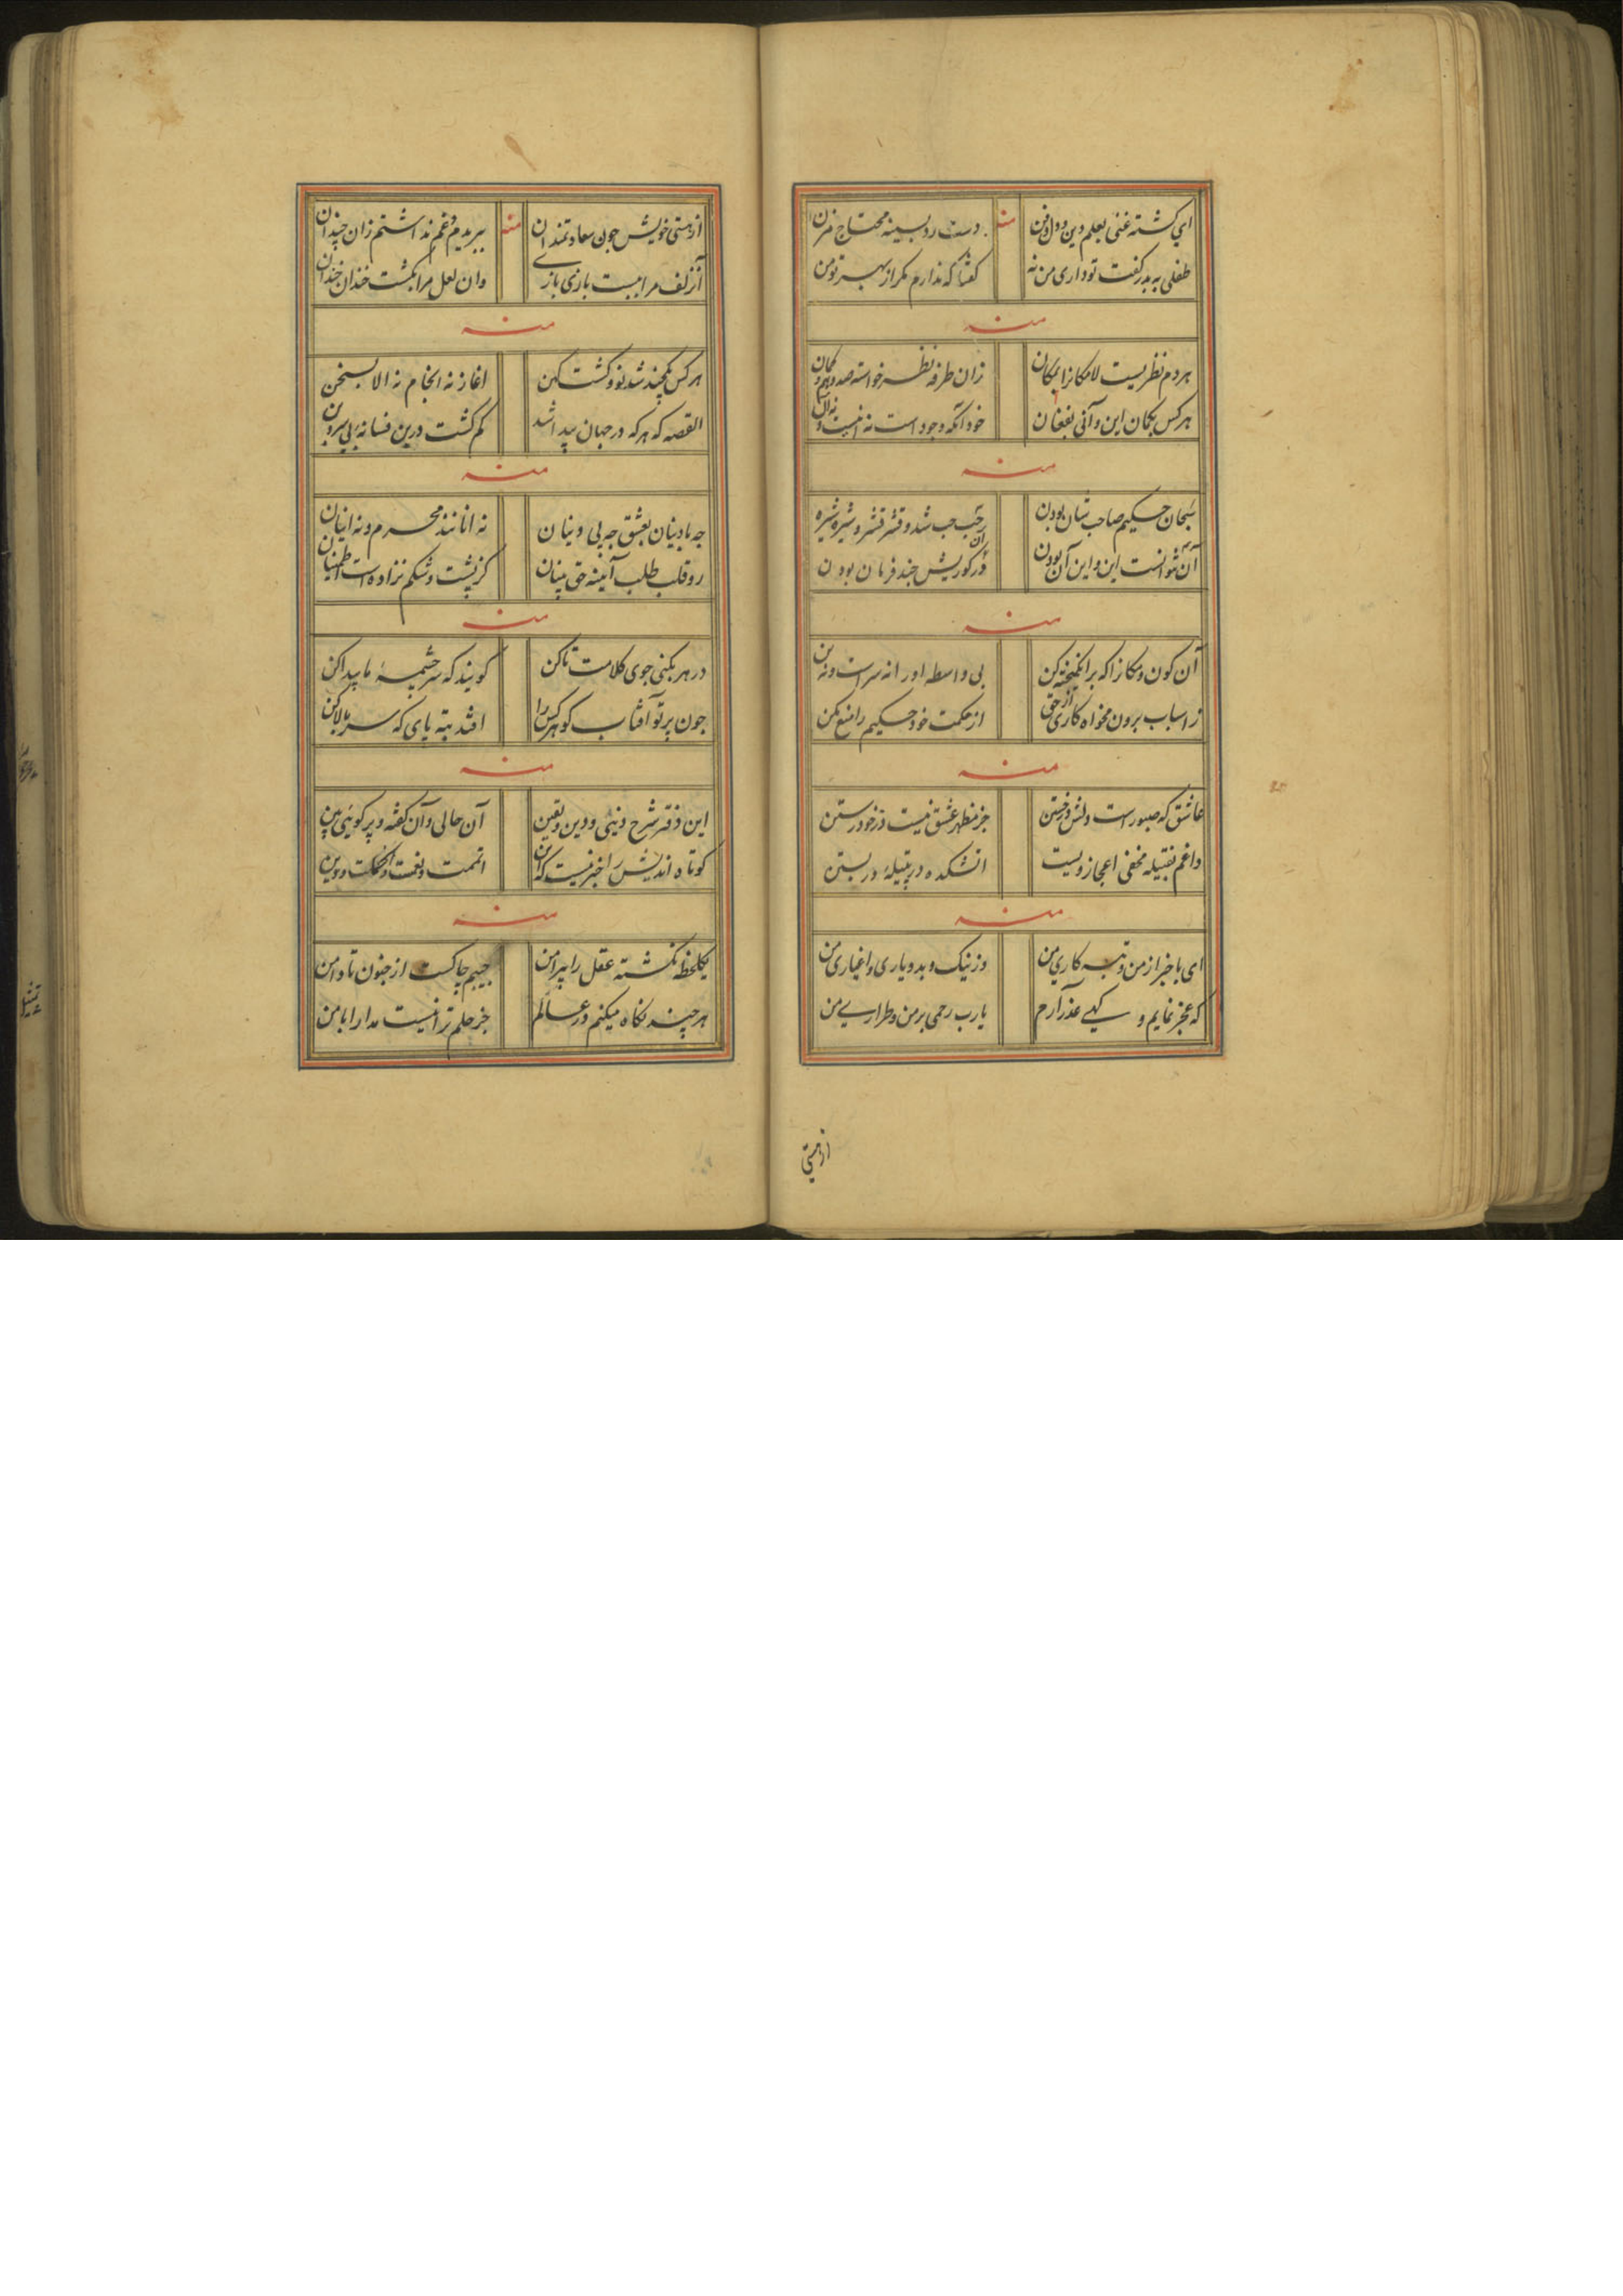 ای کشته غنی بعلم دین و دول و فن
منه
دست رد بسینه محتاج مزن
طفلی به پدر گفت تو داری من نه
گفتا که ندارم مکر از بهر تو من
منه
هر دم نظریست لامکانرا بمکان
زان طرفه نظر خواسته صد وهم و گمان
هر کس بگمان این و آنی بفغان
خود آنکه وجود است نه اینست و نه آن
منه
سبحان حکیم صاحب شان بودن
حب حب شد و قشر قشر و شیره شیره
آن نتوانست این و این آن بودن
در کوریش چند فرمان بودن
منه
آن کون و مکانرا که برانگیخته کن
بی واسطه اورا نه سر است و نه بن
ز اسباب برون مخواه کاری از حق
از حکمت خود حکیم را منع مکن
منه
عاشق که صبور است دلش در خستن
جز مظهر عشق نیست در خود رستن
داغم بفتیله مخفی اعجاز ویست
اتشکده در پتیله در بستن
منه
ای با خبر از من و تبه کاری من
وز نیک و بد و یاری و اغیاری من
که عجز نمایم و کهی عذر آرم
یارب رحمی بر من و طراری من
از هستی
از هستی خویش چون سعادتمندان
منه
ببریدم و غم نداشتم زان چندان
آن زلف مرا ببست بازی بازی
وان لعل مرا بکشت خندان خندان
منه
هر کس یکچند شد نو و گشت کهن
اغاز نه انجام نه الا بسخن
القصه که هر که در جهان پیدا شد
کم گشت درین فسانه بی سر و بن
منه
چه بادینان بعشق چه بی دینان
نه انانند محرم و نه اینان
رو قلب طلب آینه حق بینان
کز پشت و شکم نزاده است اطمینان
منه
در هر بکنی جوی کلامت تا کن
گویند که سرچشمه ما پیدا کن
چون پرتو آفتاب کو هر کس را
افتد بته پای که سر بالا کن
منه
این دفتر شرح دنیی و دین و یقین
آن حالی و آن گفته و پر کوئی بین
کوتاه اندیش را خبر نیست که این
اتممت و نعمت و اکملت و دین
منه
یکلحظه نکشته عقل را پیرامن
جیبم چاکست از جنون تا دامن
هر چند نگاه میکنم در عالم
جز حلم ترا نیست مدارا با من